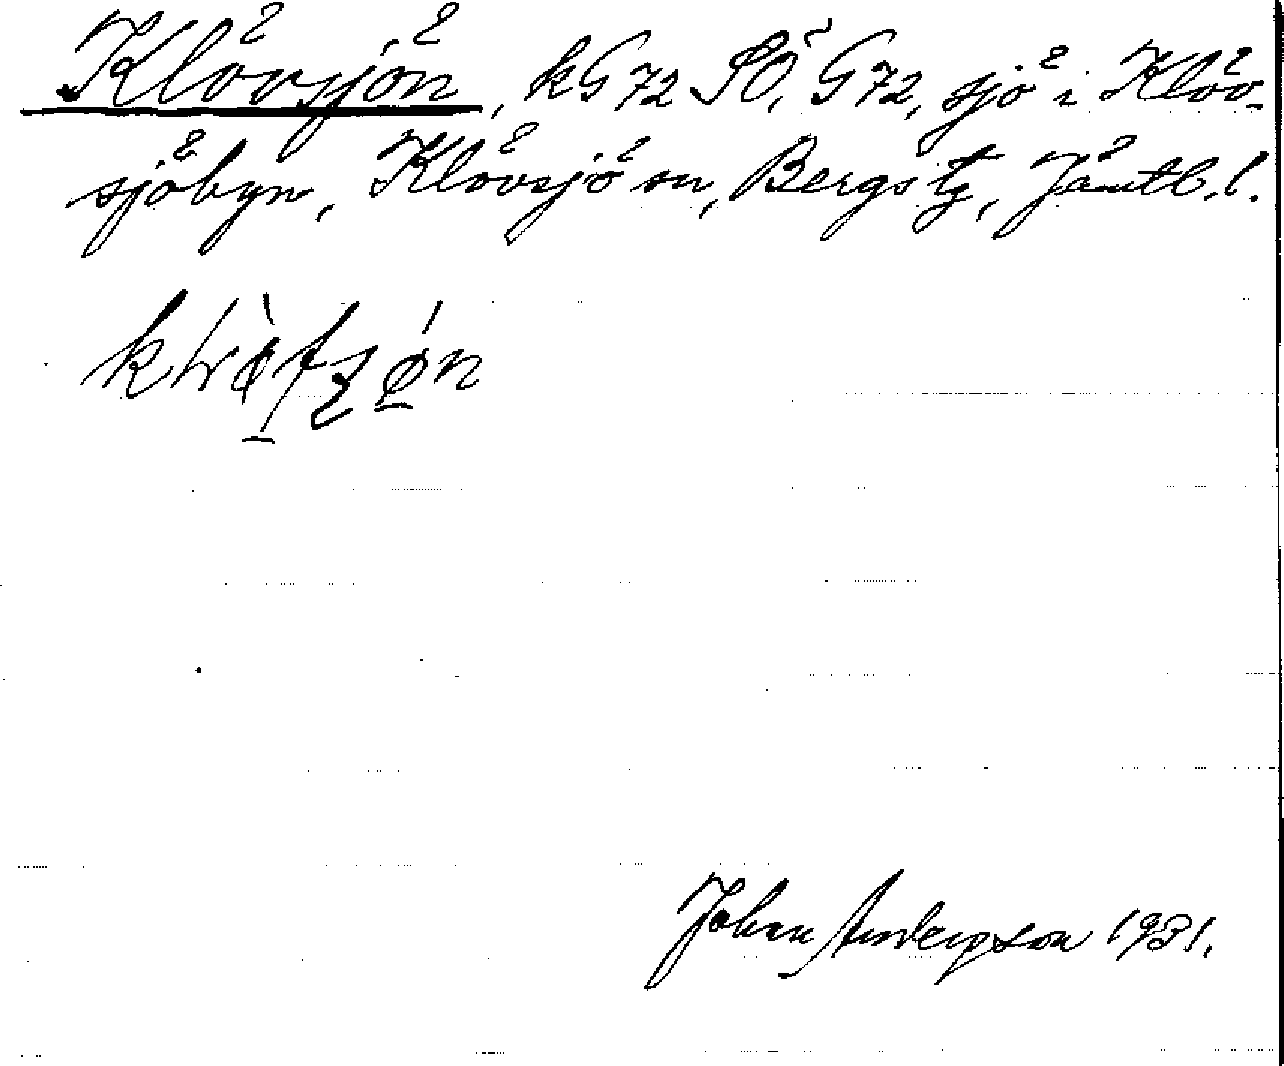 Klövsjön, kG72 SÖ, G72, sjö i Klöv-
sjöbyn, Klövsjö sn, Bergs tg, Jämtl. l.
Johan Anderson 1931.